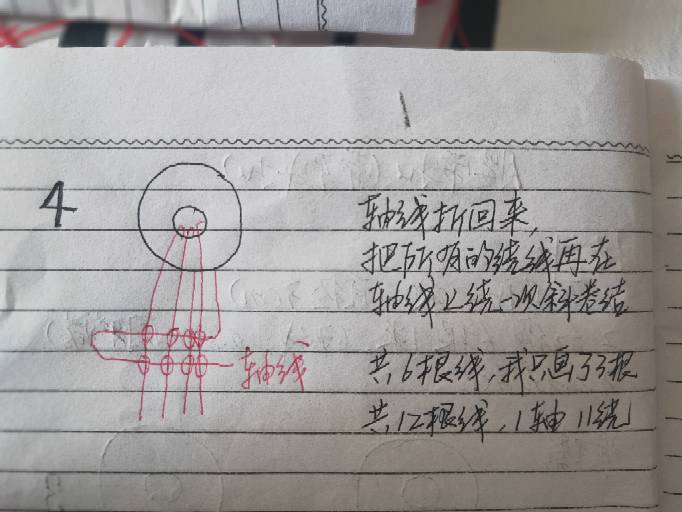 4
轴线折回来,
把所有的绕线再在
轴线上绕一次斜卷结
轴线
共6根线,我只画了3根
共12根线,1轴11绕